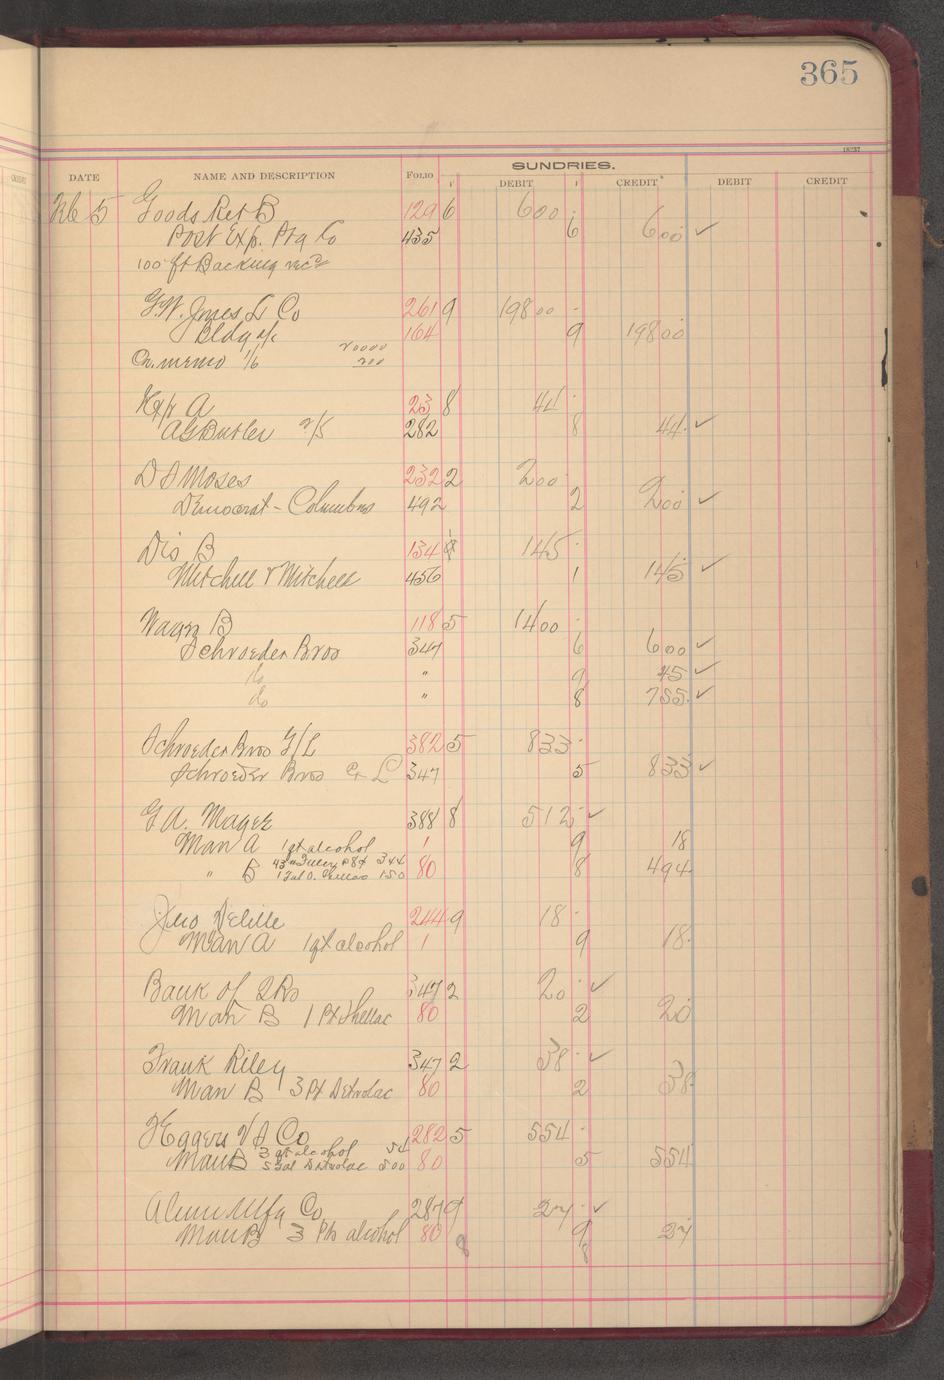 365
18237
SUNDRIES.
DATE NAME AND DESCRIPTION FOLIO DEBIT CREDIT DEBIT CREDIT
5 Goods Ret B 129 6 600
Post Exp. Ptg Co 435 6 600 ✓
100 ft Backing rec'd
G.W. Jones L Co 261 9 198 00
Bldg a/c 164 9 198 00
Cr. memo 1/6 20000
200
Exp A 23 8 44
AG Butler 282 8 44 ✓
D S Moses 232 2 200
Democrat - Columbus 492 2 200 ✓
Dis B 134 145
Mitchell & Mitchell 456 1 145 ✓
Wages B 118 5 1400
Schroeder Bros 347 6 600 ✓
do " 9 45 ✓
do " 8 755 ✓
Schroeder Bros G/L 382 5 833
Schroeder Bros C L 347 5 833 ✓
G A. Mager 388 8 512 ✓
Man A 1 qt alcohol 1 9 18
" B 80 8 494
344
150
Jno Delille 244 9 18
Man A 1 qt alcohol 1 9 18
Bank of 347 2 20 ✓
Man B 1 Pt Shellac 80 2 20
Frank Riley 347 2 38 ✓
Man B 3 Pt Detrolac 80 2 38
Eggers V S Co 282 5 554
Man B 3 qt alcohol 54 80 5 554
5 Gal Detrolac 500
Alum Mfg Co 287 9 27 ✓
Man B 3 Pts alcohol 80 9 27
8 8